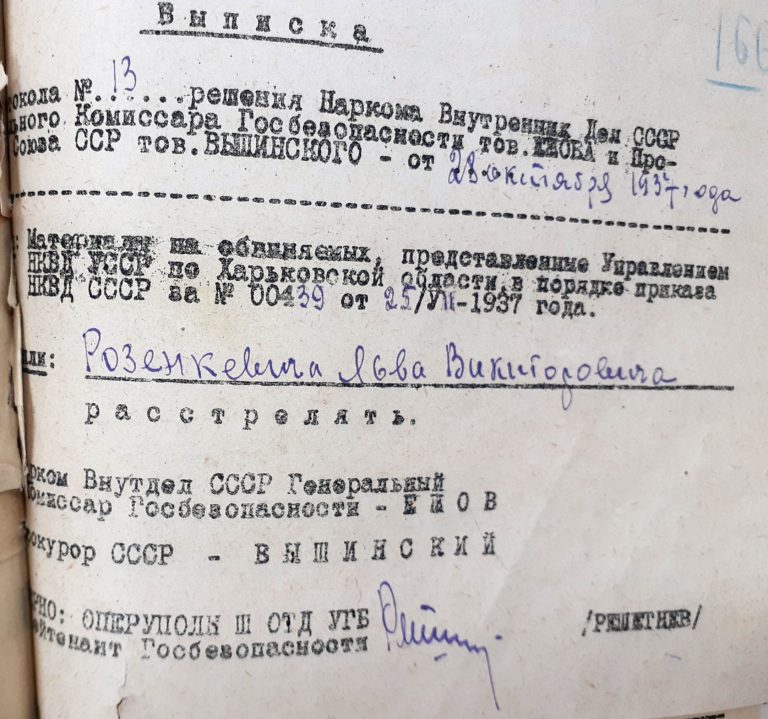 Выписка
166
окола №..13....решения Наркома Внутренник Дел СССР
льного Комиссара Госбезопасности тов.ЕЖОВА и Про-
Союза ССР тов.ВЫШИНСКОГО - от 28 октября 1937 года
: Материалы на обвиняемых, представленные Управлением
НКВД УССР по Харьковской области, в порядке приказа
НКВД СССР за № 00439 от 25/VII-1937 года.
или: Розенкевича Льва Викторовича
расстрелять.
рком Внутдел СССР Генеральный
омиссар Госбезопасности - ЕЖОВ
рокурор СССР - ВЫШИНСКИЙ
РНО: ОПЕРУПОЛН Ш ОТД УГБ
ейтенант Госбезопасности /РЕШЕТНЕВ/